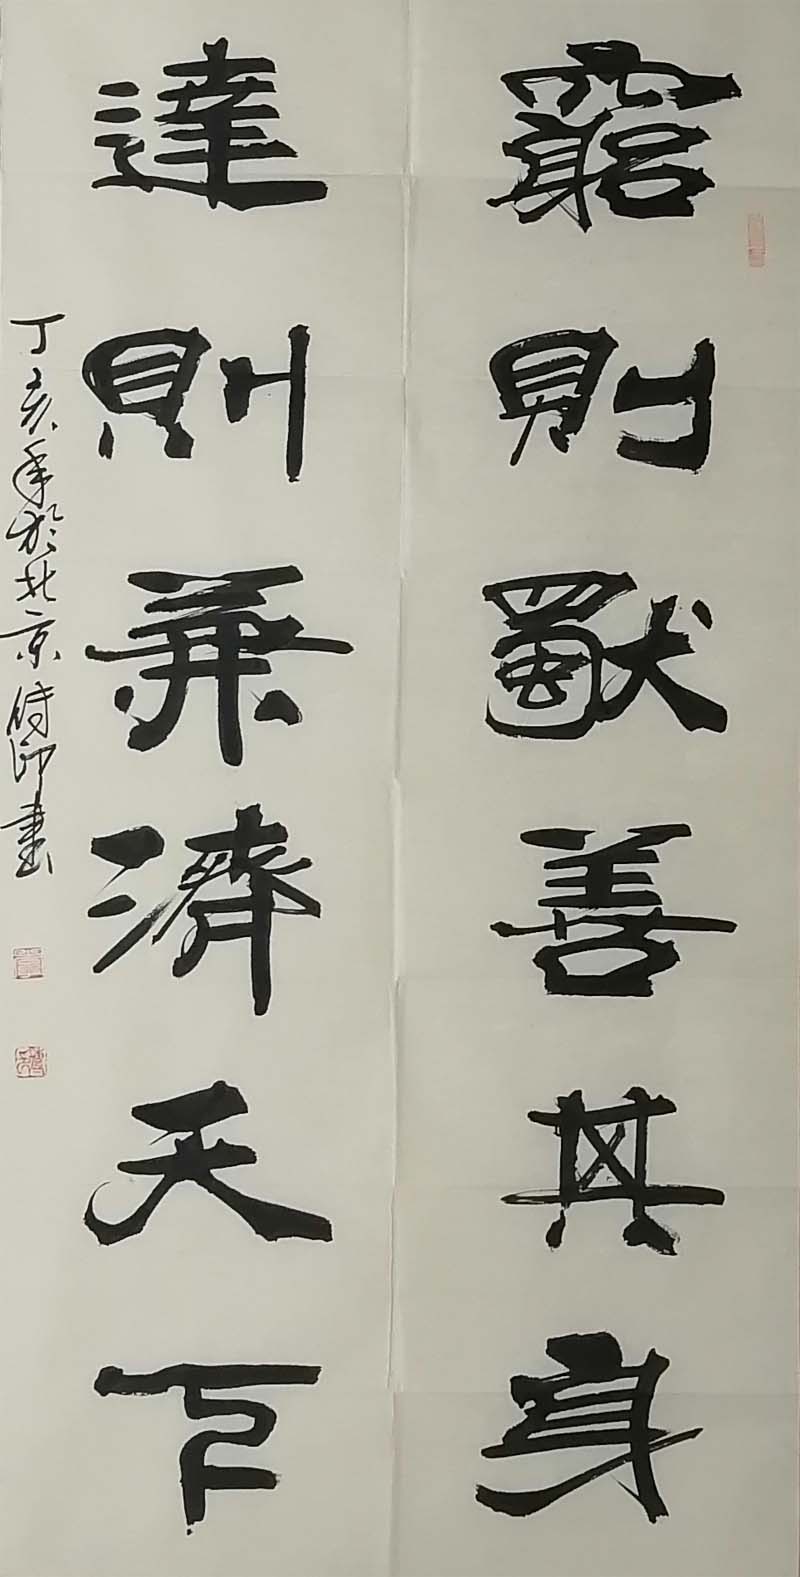 窮則獨善其身
達則兼濟天下
丁亥年於北京時印書